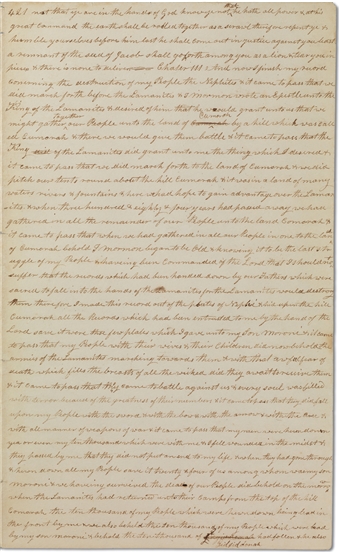 know ye not that ye are in the hands of God know ye not that he hath all power & at his
great command the earth shall be rolled together as a scroll therefore repent ye &
humble yourselves before him lest he shall come out in justice against you lest
a remnant of the seed of Jacob shall go forth among you as a lion & tear you in
pieces & there is none to deliver Chapter III And now I finish my record
concerning the destruction of my People the Nephites & it came to pass that we
did march forth before the Lamanites & I Mormon wrote an epistle unto the
King of the Lamanites & desired of him that he would grant unto us that we
might gather together our People unto the land of Cumorah by a hill which was call
ed Cumorah & there we would give them battle & it came to pass that the
King of the Lamanites did grant unto me the thing which I desired &
it came to pass that we did march forth to the land of Cumorah & we did
pitch our tents round about the hill Cumorah & it was in a land of many
waters rivers & fountains & here we had hope to gain advantage over the Laman
ites & when three hundred & eighty & four years had passed away we had
gathered in all the remainder of our People unto the land Cumorah &
it came to pass that when we had gathered in all our People in one to the land
of Cumorah behold I Mormon began to be old & knowing it to be the last str
uggle of my People & having been commanded of the Lord that I should not
suffer that the records which had been handed down by our Fathers which were
sacred to fall into the hands of the Lamanites for the Lamanites would destroy
them therefore I made this record out of the plates of Nephi & hid up in the hill
Cumorah all the Records which had been entrusted to me by the hand of the
Lord save it were these few plates which I gave unto my Son Moroni & it came
to pass that my People with their wives & their Children did now behold the
armies of the Lamanites marching towards them & with that awful fear of
death which fills the breasts of all the wicked did they await to receive them
& it came to pass that they came to battle against us & every soul was filled
with terror because of the greatness of their numbers & it came to pass that they did fall
upon my People with the sword & with the bow & with the arrow & with the axe &
with all manner of weapons of war & it came to pass that my men were hewn down
yea or even my ten thousand which were with me & I fell wounded in the midst &
they passed by me that they did not put an end to my life & when they had gone through
& hewn down all my People save it were twenty & four of us among whom was my son
Moroni & we having survived the dead of our People did behold on the morrow
when the Lamanites had returned unto their camps from the top of the hill
Cumorah the ten thousand of my People which were hewn down being lead in
the front by me & we also beheld the ten thousand of my People which were led
by my son Moroni & behold the ten thousand of Gidgiddonah had fallen & he also